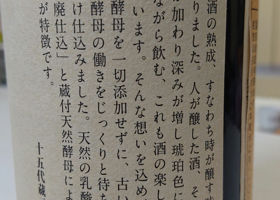 酒の熟成、すなわち時が醸す
りました。人が醸した酒、そ
が加わり深みが増し琥珀色に
ながら飲む、これも酒の楽し
います。そんな想いを込め
酵母を一切添加せずに、古い
酵母の働きをじっくりと待ち
け仕込みました。天然の乳酸
廃仕込」と蔵付天然酵母によ
が特徴です。
十五代蔵